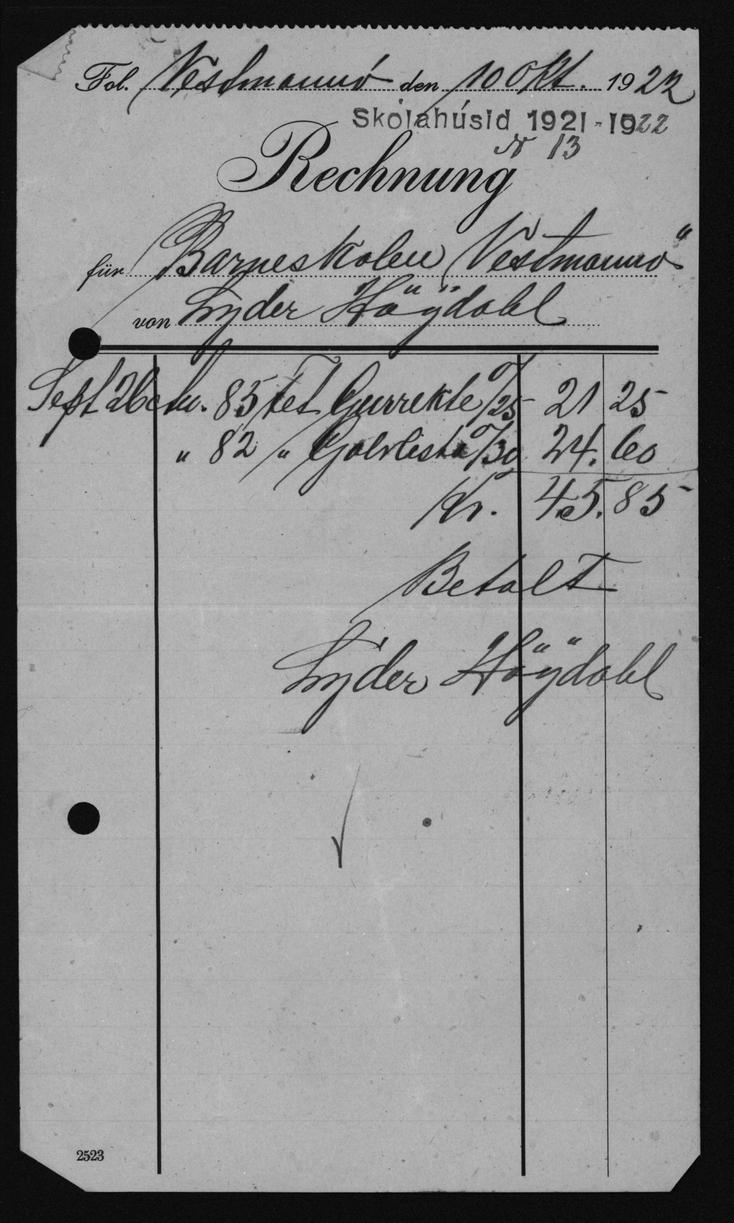 Fol. Vestmannö den 10 Okt. 1922
Skólahúsid 1921-1922
N 13
Rechnung
für Barneskolen "Vestmannö"
von Lyder Höydahl
Sept 26 85 fet 0/25 21 25
" 82 " Golvlista 0/30 24.60
Kr. 45.85
Betalt
Lyder Höydahl
2523